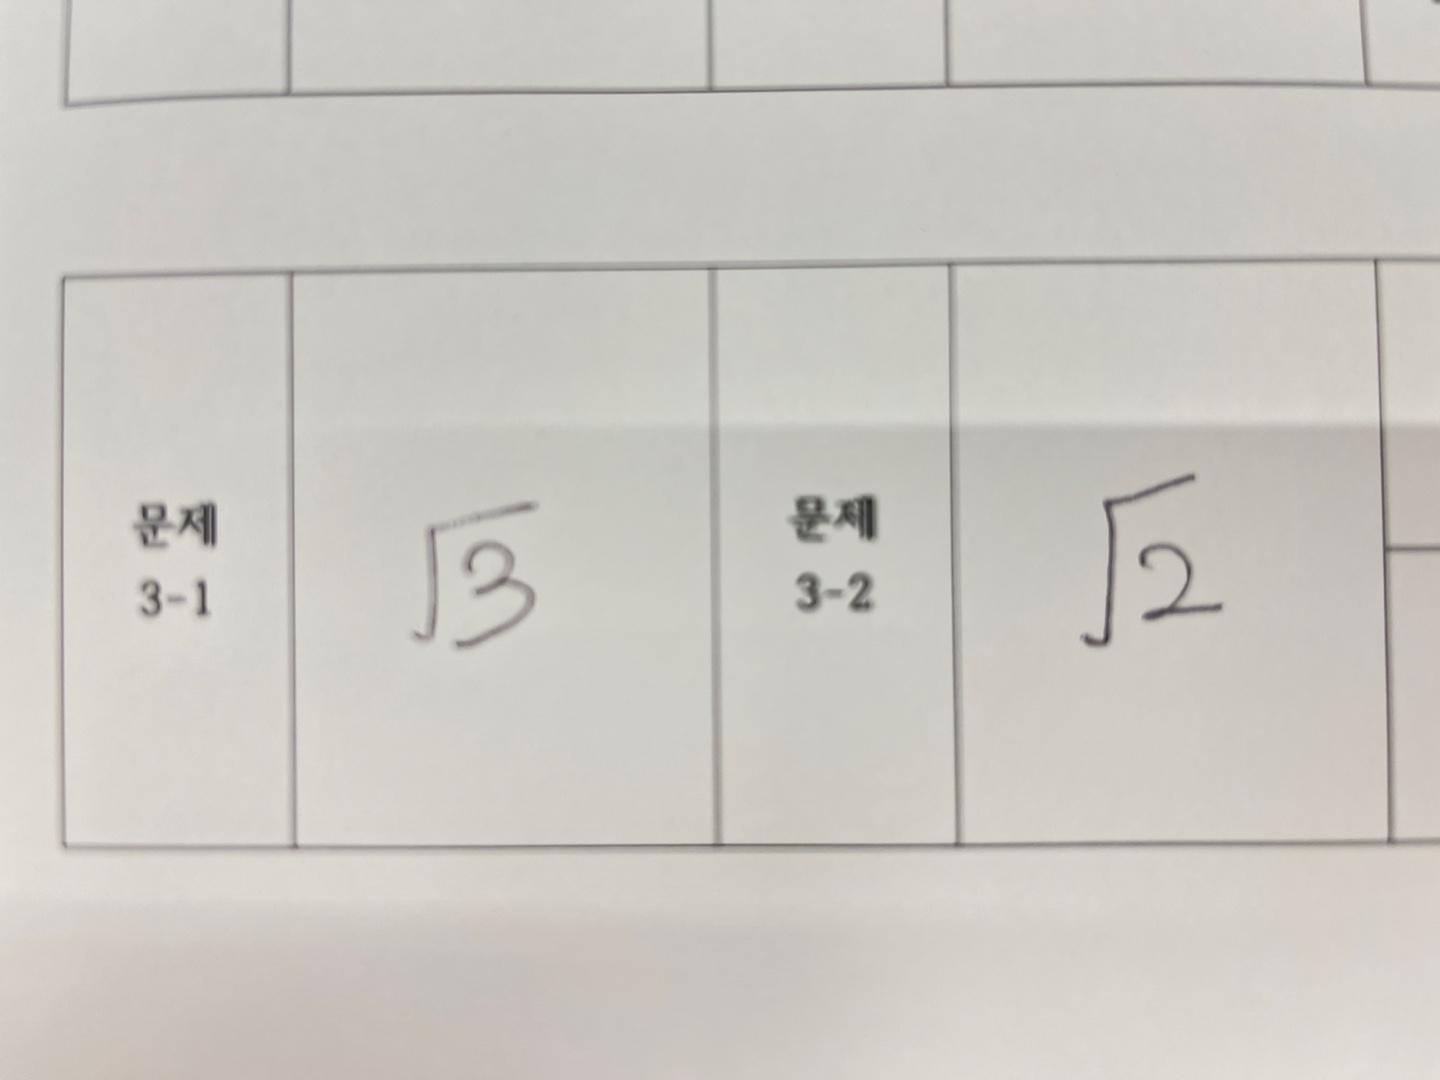 문제
3-1
√3
문제
3-2
√2